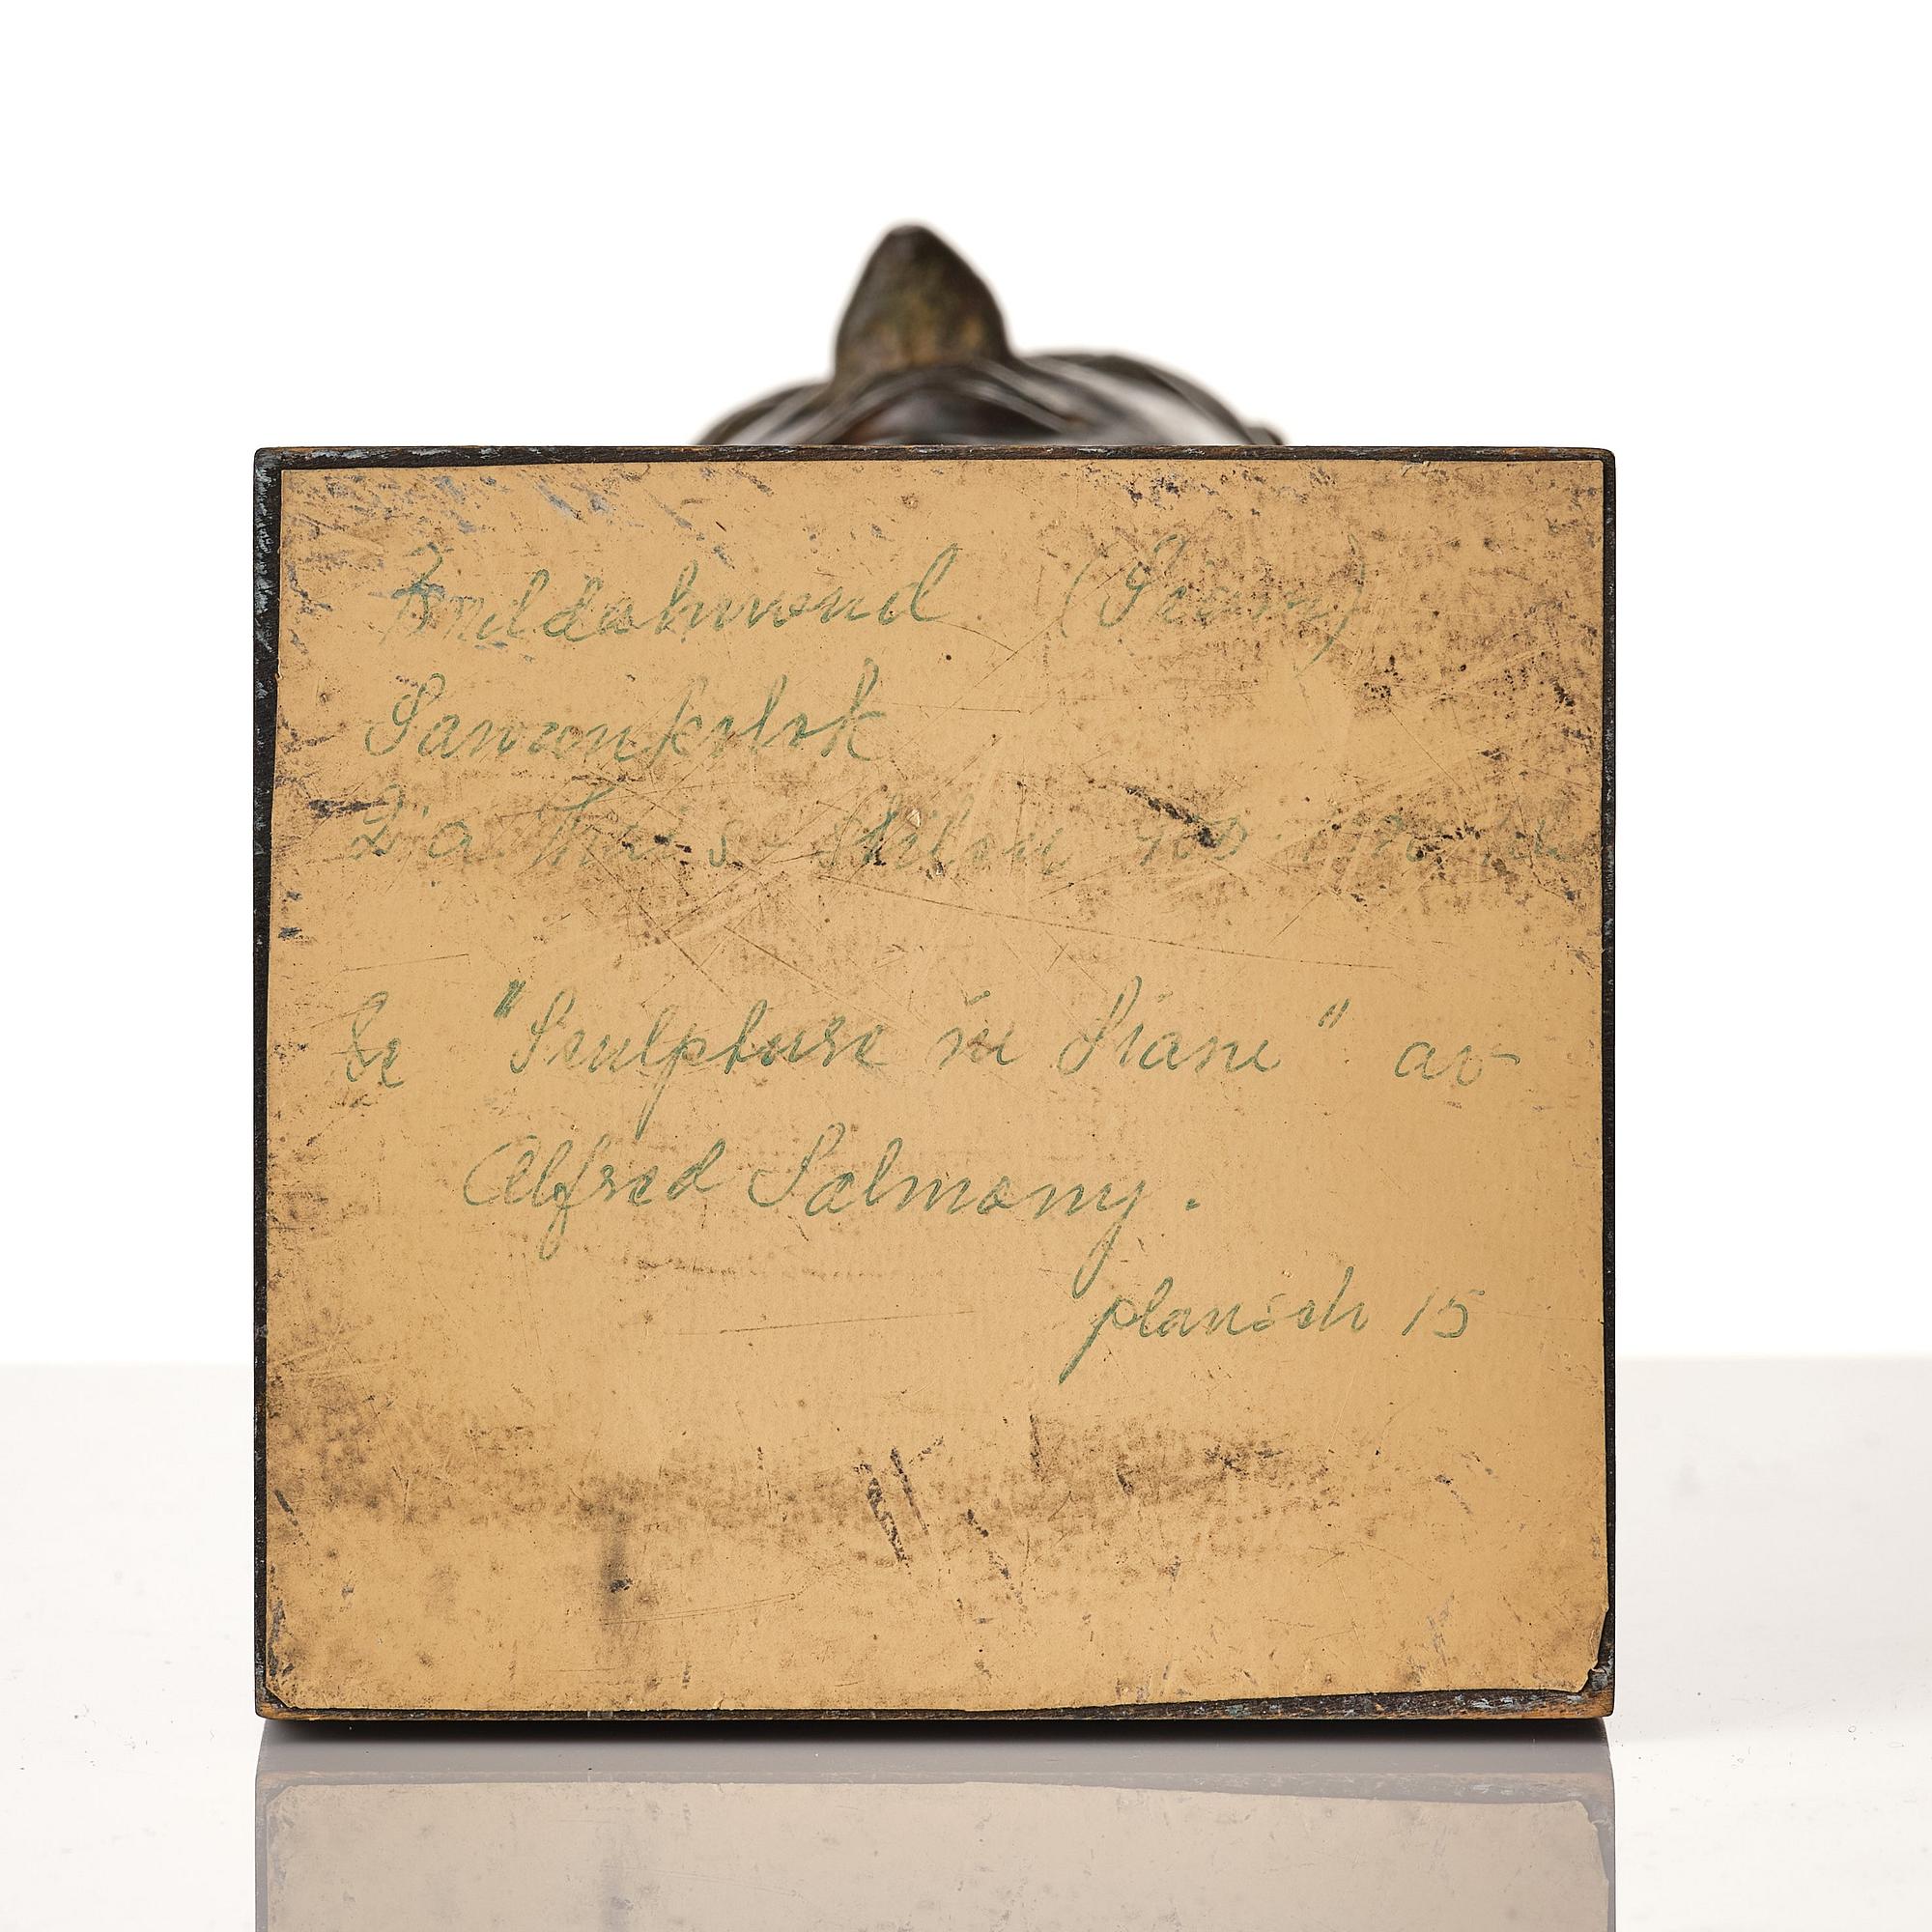 Buddahuvud (Siam)
Sawankolok
Se "Sculpture in Siam" av
Alfred Salmony.
plansch 15